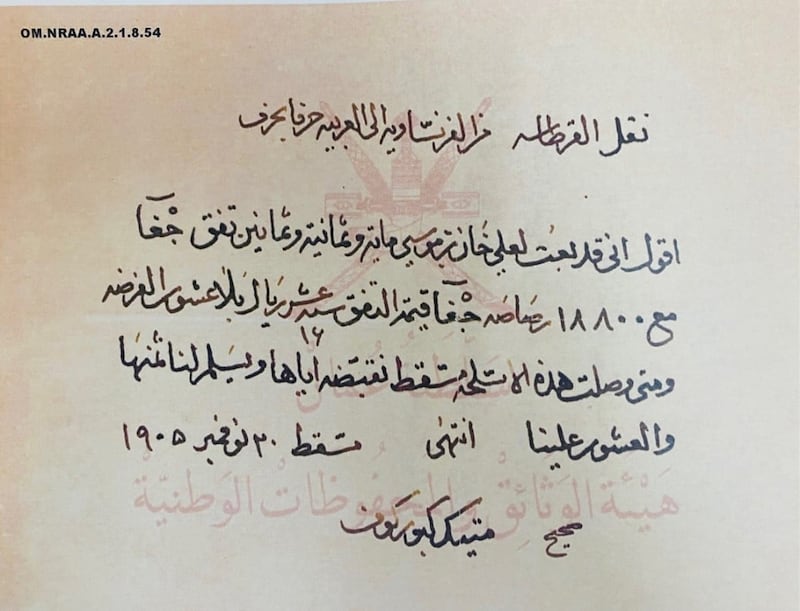 OM.NRAA.A.2.1.8.54
نقل القرطاسه من الفرنساويه الى العربيه حرفا بحرف
اقول انى قد بعت لعلي خان بن موسى ماية وثمانية وثمانين تفق
مع ١٨٨٠٠ رصاصه قيمة التفق سته عشر ريال بلا عشور الفرضه
١٦
ومتى وصلت هذه الاسلحه مسقط نقبضه اياها ويسلم لنا ثمنها
والعشور علينا انتهى مسقط ٣٠ نوفمبر ١٩٠٥
صحيح
هيئة الوثائق والمحفوظات الوطنية